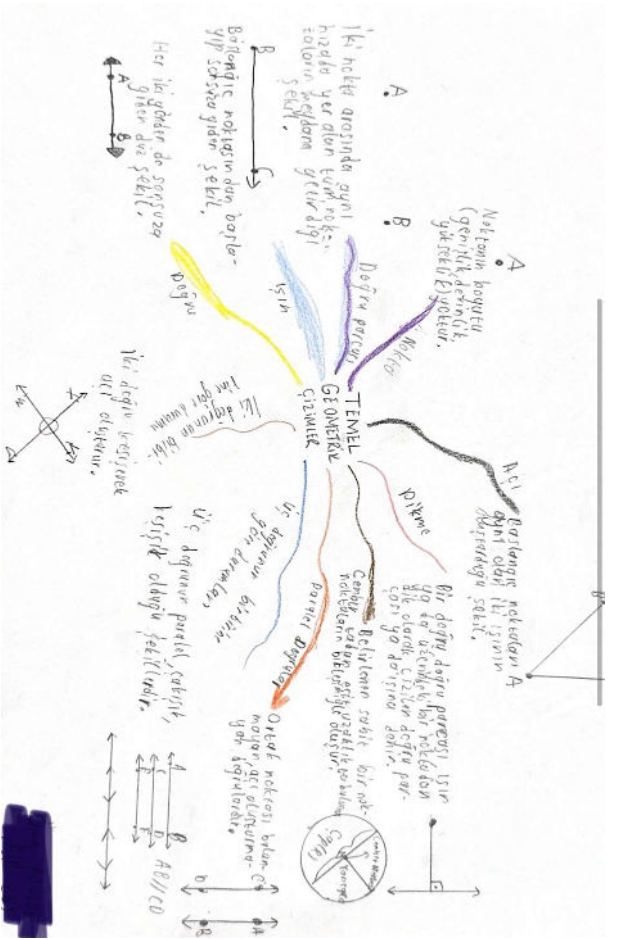 TEMEL
GEOMETRİK
ÇİZİMLER
Nokta
A
Noktanın boyutu
(genişlik, derinlik,
yükseklik) yoktur.
Doğru parçası
A
B
İki nokta arasında aynı
hizada yer alan tüm nok-
taların meydana getirdiği
şekil.
Işın
B
C
Başlangıç noktasından başla-
yıp sonsuza giden şekil.
Doğru
Her iki yönden de sonsuza
giden düz şekil.
A
B
İki doğrunun birbi-
rine göre durumu
İki doğru kesişerek
açı oluşturur.
Üç doğrunun birbirine
göre durumları
Üç doğrunun paralel, çakışık,
kesişik olduğu şekillerdir.
A
B
C
D
E
F
AB//CD
Paralel Doğrular
Ortak noktası bulun-
mayan, açı oluşturma-
yan doğrulardır.
C
D
A
B
Çember
Belirlenen sabit bir nok-
noktaların birleşimiyle oluşur.
Çap(R)
Yarıçap(r)
Dikme
Bir doğru, doğru parçası, ışın
ya da üzerindeki bir noktadan
dik olarak çizilen doğru par-
çası ya da ışına denir.
Açı
Başlangıç noktaları
aynı olan iki ışının
oluşturduğu şekil.
B
A